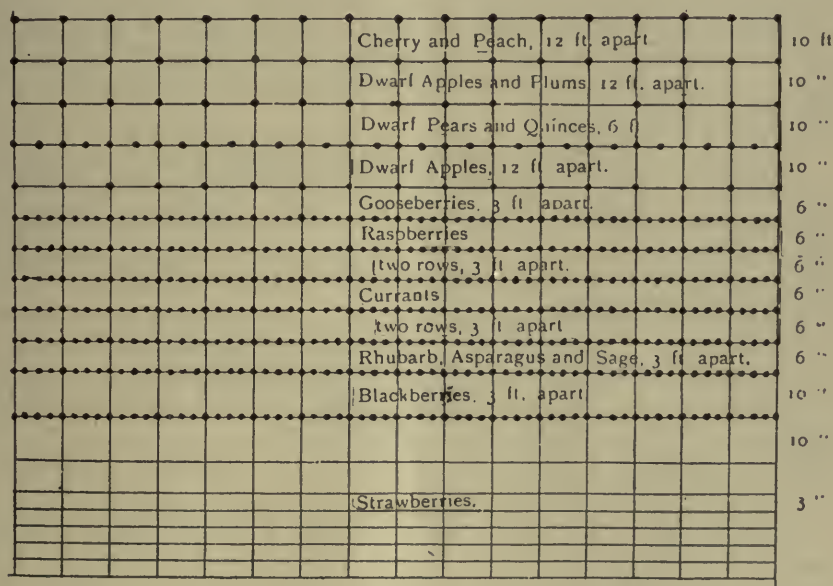 Cherry and Peach, 12 ft. apart 10 ft
Dwarf Apples and Plums 12 ft. apart. 10 "
Dwarf Pears and Quinces, 6 f 10 "
Dwarf Apples, 12 ft apart. 10 "
Gooseberries. 3 ft apart. 6 "
Raspberries 6 "
two rows, 3 ft apart. 6 "
Currants 6 "
two rows, 3 ft apart 6 "
Rhubarb, Asparagus and Sage, 3 ft apart. 6 "
Blackberries. 3 ft. apart 10 "
10 "
Strawberries. 3 "